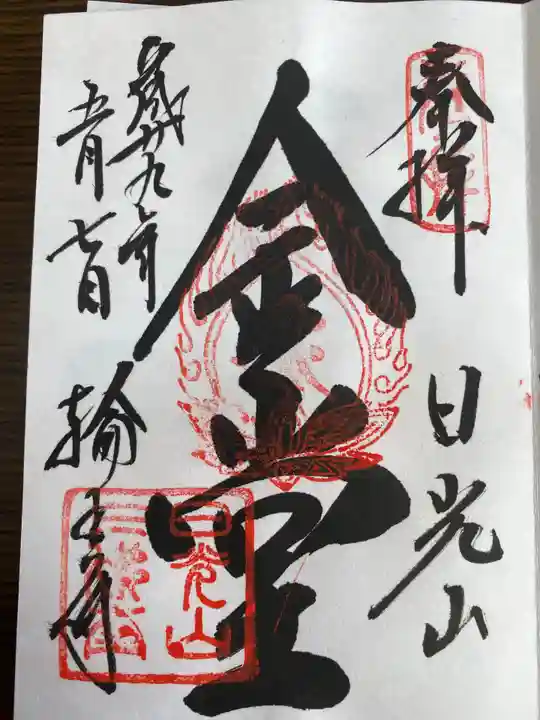 奉拝
日光山
金堂
平成廿九年
五月七日
輪王寺
日光山